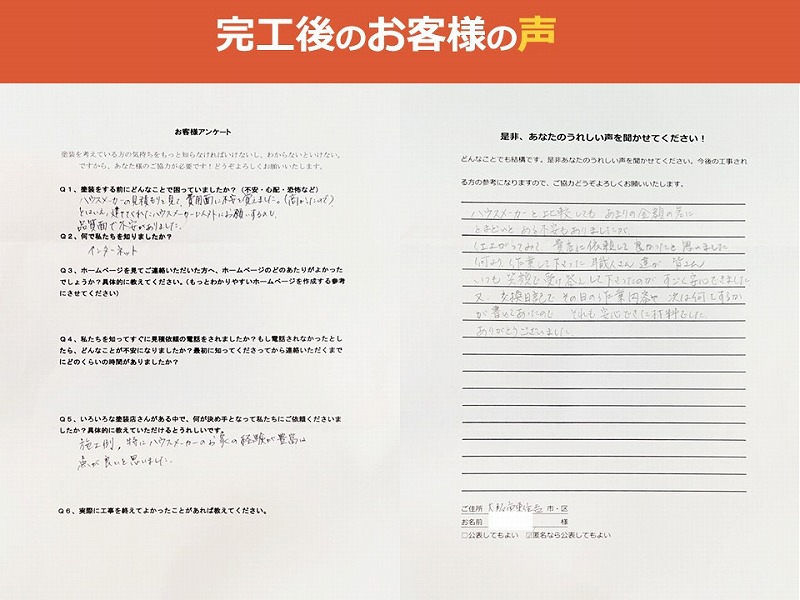 完工後のお客様の声
お客様アンケート
塗装を考えている方の気持ちをもっと知らなければいけないし、わからないといけない。
ですから、あなた様のご協力が必要です！どうぞよろしくお願いいたします。
Ｑ１、塗装をする前にどんなことで困っていましたか？（不安・心配・恐怖など）
ハウスメーカーの見積もりを見て、費用面に不安を覚えました。（高かったので）
とはいえ、建ててくれたハウスメーカー以外にお願いするのも、
品質面で不安がありました。
Ｑ２、何で私たちを知りましたか？
インターネット
Ｑ３、ホームページを見てご連絡いただいた方へ、ホームページのどのあたりがよかった
でしょうか？具体的に教えてください。（もっとわかりやすいホームページを作成する参考
にさせてください）
Ｑ４、私たちを知ってすぐに見積依頼の電話をされましたか？もし電話されなかったとし
たら、どんなことが不安になりましたか？最初に知ってくださってから連絡いただくまで
にどのくらいの時間がありましたか？
Ｑ５、いろいろな塗装店さんがある中で、何が決め手となって私たちにご依頼くださいま
したか？具体的に教えていただけるとうれしいです。
施工例、特にハウスメーカーのお家の経験が豊富な
点が良いと思いました。
Ｑ６、実際に工事を終えてよかったことがあれば教えてください。
是非、あなたのうれしい声を聞かせてください！
どんなことでも結構です。是非あなたのうれしい声を聞かせてください。今後の工事され
る方の参考になりますので、ご協力どうぞよろしくお願いいたします。
ハウスメーカーと比較しても あまりの金額の差に
とまどいと ある不安もありましたが、
仕上がってみて、貴店に依頼して良かったと思いました
何より作業して下さった 職人さん達が 皆さん
いつも笑顔で受け答えして下さったのが すごく安心できました
又、交換日記で その日の作業内容や 次は何をするか
が書いてあったので それも安心できた材料でした。
ありがとうございました。
ご住所 大阪市東住吉 市・区
お名前 様
□公表してもよい ☑匿名なら公表してもよい